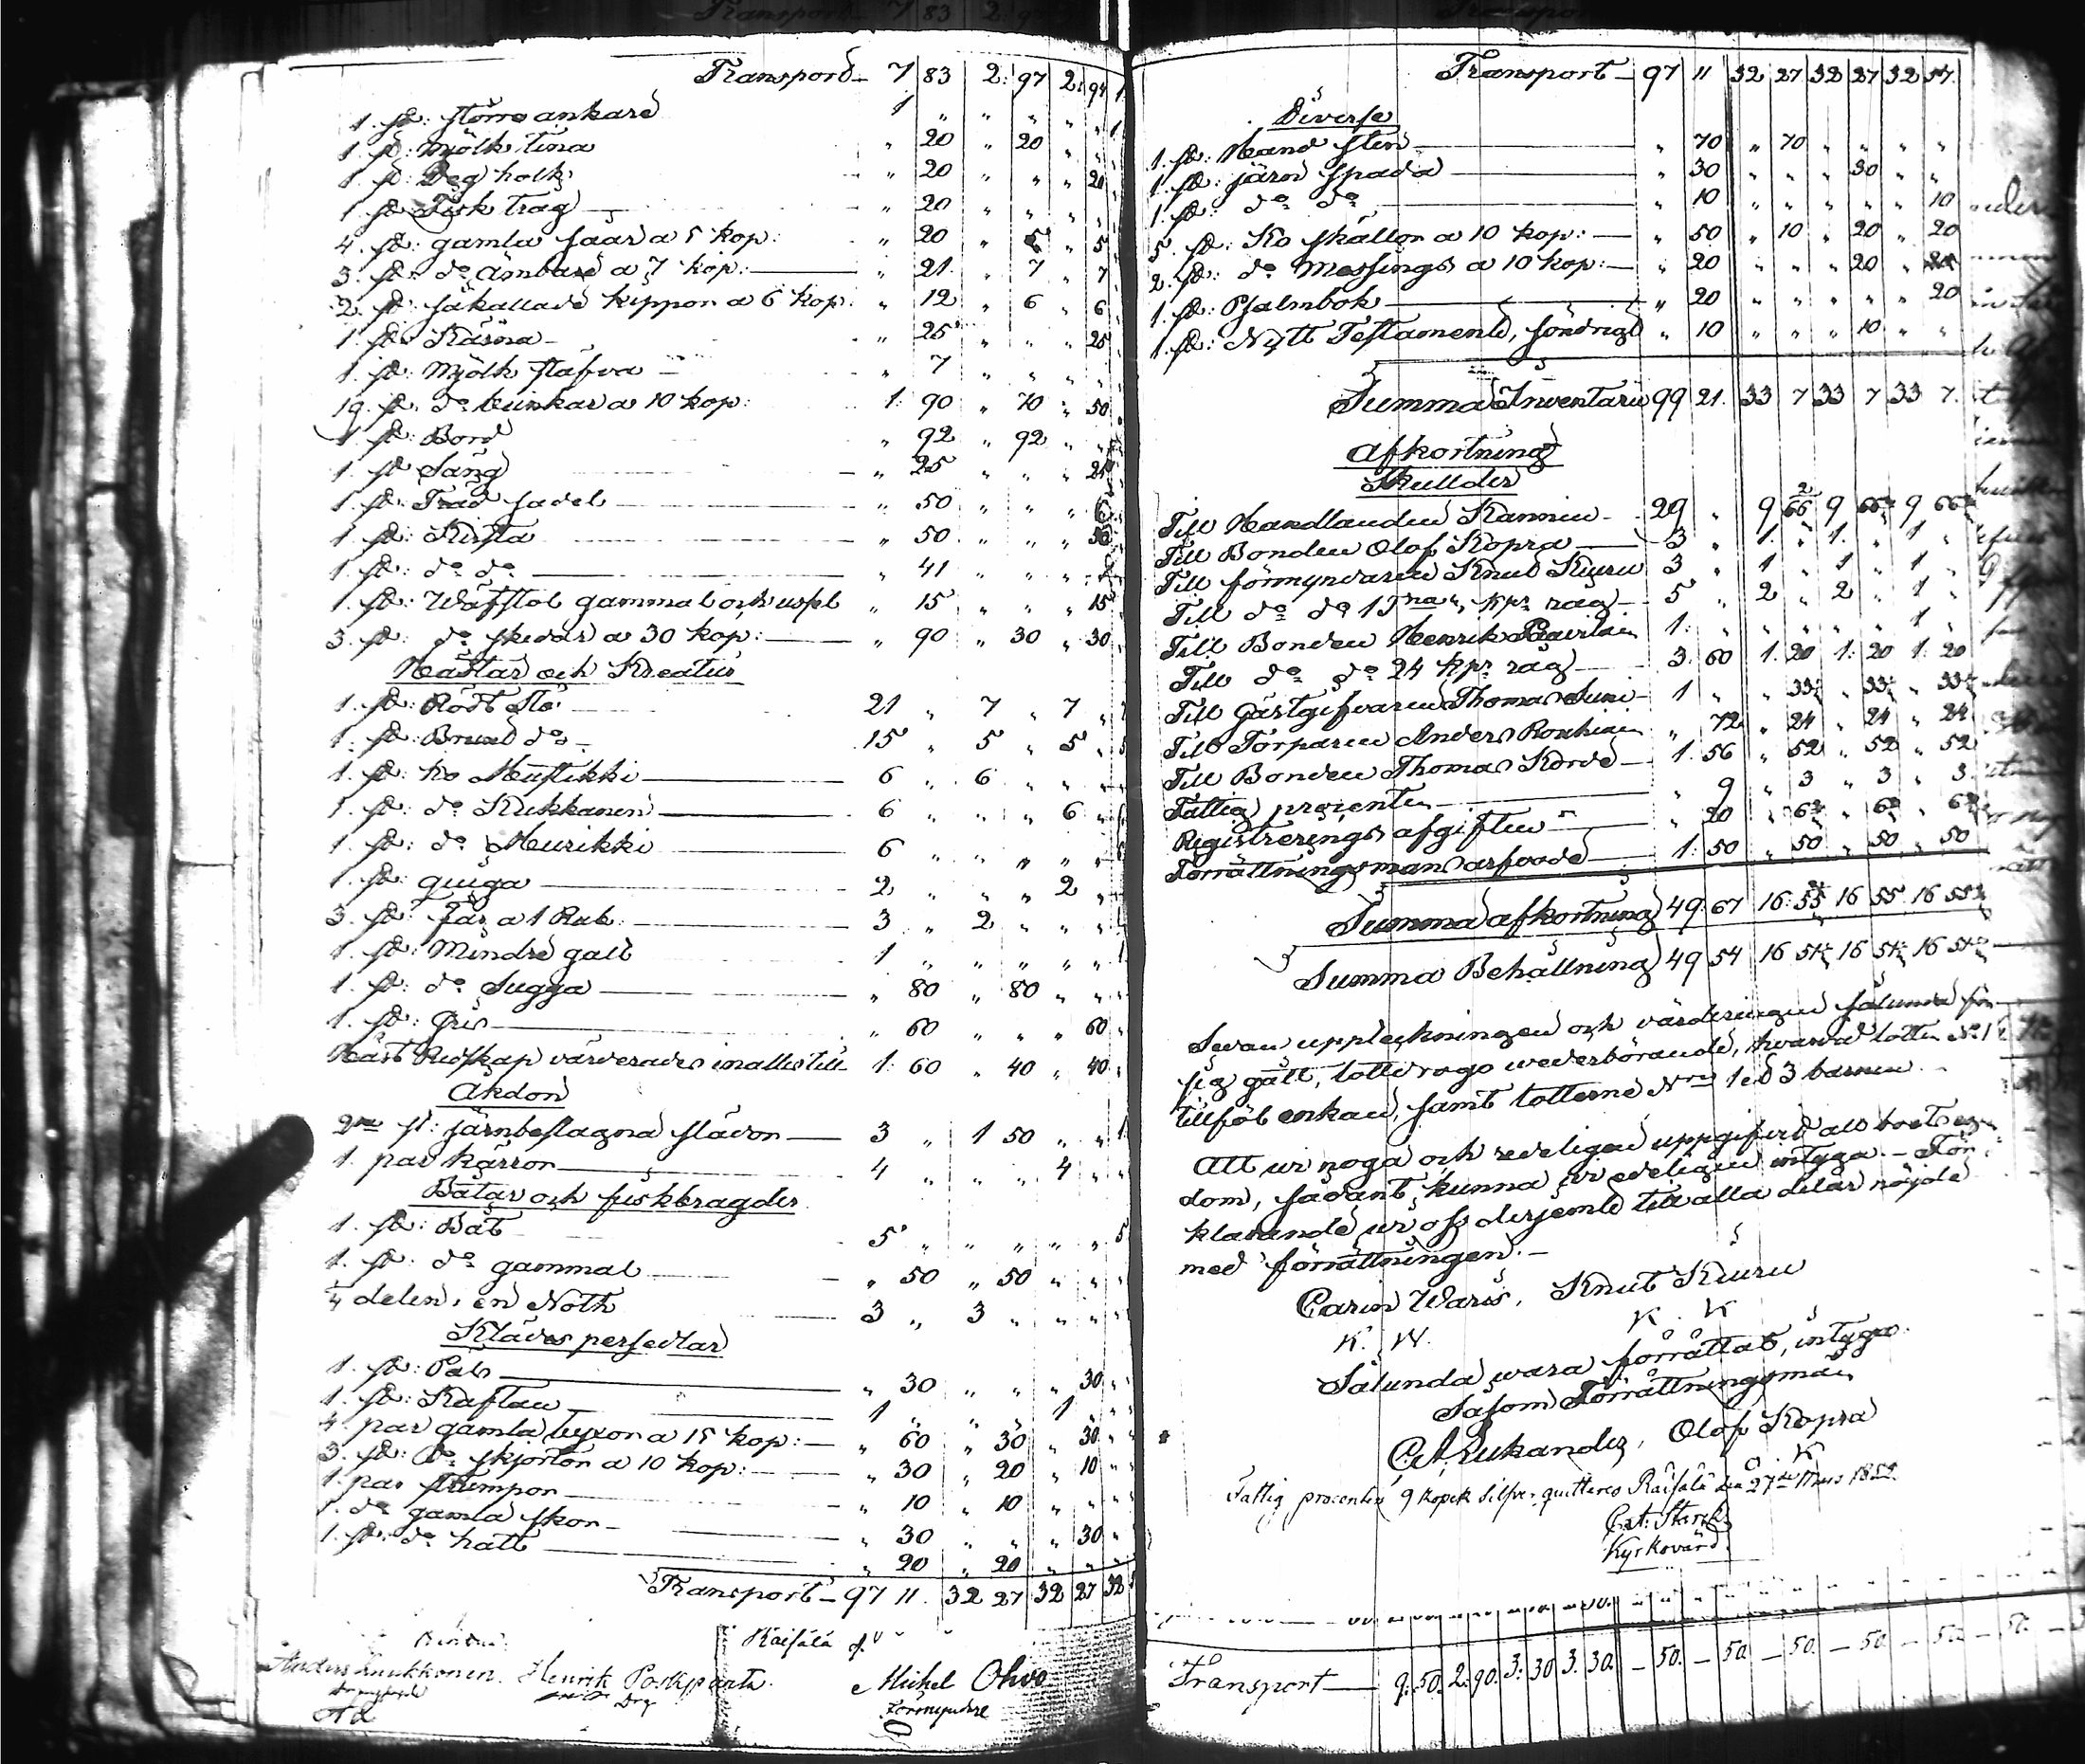 Transport 7 83 2: 97 2: 94 1
1. st: större ankare 1 „ „ „ „ „ 1
1. st: Mjölk tina „ 20 „ 20 „ „
1. st: Deg holk „ 20 „ „ „ 20
1. st: Fisk trag „ 20 „ „ „ „
4. st: gamla såar a 5 kop: „ 20 „ 5 „ 5
3. st: do Ämbare a 7 kop: „ 21. „ 7 „ 7
2. st: såkallade kippor a 6 kop: „ 12 „ 6 „ 6
1. st: Kärna „ 25 „ „ „ 25
1. st: Mjölk stäfva „ 7 „ „ „ „
19. st: do bunkar a 10 kop: 1: 90 „ 70 „ 50
1. st: Bord „ 92 „ 92 „ „
1. st: Säng „ 25 „ „ „ 25
1. st: Träd sadel „ 50 „ „ „
1. st: Kista „ 50 „ „ „ 50
1. st: do do „ 41 „ „ „
1. st: Wäfstol gammal och uspel „ 15 „ „ „ 15
3. st: do skedar a 30 kop: „ 90 „ 30 „ 30
Hästar och Kreatur
1. st: Rödt Sto 21 „ 7 „ 7 „
1. st: Brunt do 15 „ 5 „ 5 „ 5
1. st: ko Mustikki 6 „ 6 „ „ „
1. st: do Kukkanen 6 „ „ „ 6 „
1. st: do Meurikki 6 „ „ „ „ „ 6
1. st: quiga 2 „ „ „ 2 „
3. st: Får a 1 Rub: 3 „ 2 „ „ „
1. st: Mindre galt 1 „ „ „ „ „ 1
1. st: do Sugga „ 80 „ 80 „ „
1. st: Gris „ 60 „ „ „ 60
Häst Redskap värderades in alles till 1: 60 „ 40 „ 40
Åkdon
2ne st: järnbeslagna slädor 3 „ 1 50 „ „ 1
1. par kärror 4 „ „ „ 4 „
Båtar och fiskbragder
1. st: Båt 5 „ „ „ „ „ 5
1. st: do gammal „ 50 „ 50 „ „
¼ delen i en Noth 3 „ 3 „ „ „
Klädes persedlar
1. st: Pels „ 30 „ „ „ 30
1. st: Kaftan 1 „ „ „ 1 „
4. par gamla byxor a 15 kop: „ 60 „ 30 „ 30
3. st: do skjortor a 10 kop: „ 30 „ 20 „ 10
1. par Strumpor „ 10 „ 10 „ „
1. do gamla skor „ 30 „ „ „ 30
1. st: do hatt „ 20 „ 20 „ „
Transport 97 11. 32 27 32 27 32
Räisälä
Anders Henrik Michel Ohvo
Förmyndare
Transport 97 11 32 27 32 27 32 57.
Diverse
1. st: Hand sten „ 70 „ 70 „ „ „ „
1. st: järn spada „ 30 „ „ „ 30 „ „
1. st: do do „ 10 „ „ „ „ „ 10
5. st: Ko skällor a 10 kop: „ 50 „ 10 „ 20 „ 20
2. st: do Messings a 10 kop: „ 20 „ „ „ 20 „
1. st: Psalmbok „ 20 „ „ „ „ „ 20
1. st: Nytt Testamente, söndrigt „ 10 „ „ „ 10 „ „
Summa Inventarii 99 21. 33 7 33 7 33 7.
Afkortning
Skullder
Till Handlanden Kannin 29 „ 9 66 9 66 9 66
Till Bonden Olof Kopra 3 „ 1. „ 1. „ 1 „
Till förmyndaren Knut Kiuru 3 „ 1 „ 1 „ 1 „
Till do do kpr råg 5 „ 2 „ 2 „ 1 „
Till Bonden Henrik 1: „ „ „ „ „ 1 „
Till do do 24 kpr råg 3: 60 1: 20 1: 20 1: 20
Till Gästgifvaren Thomas 1 „ „ 33 „ 33 „ 33
Till Torparen Anders „ 72 „ 24 „ 24 „ 24
Till Bonden Thomas 1: 56 „ 52 „ 52 „ 52
Fattig procenten „ 9 „ 3 „ 3 „ 3.
Registrerings afgiften „ 20 „ 6 „ 6 „ 6
Förrättningsmans arfvode 1: 50 „ 50 „ 50 „ 50
Summa afkortning 49: 67 16: 55 16 55 16 55
Summa Behållning 49 54 16 51 16 51 16 51
Sedan uppteckningen och värderingen sålunda för
sig gått, lottdrogo wederbörande, hvarvid lotten No 1
tillföll enkan, samt lotterne Nro 1 et 3 barnen.
Att vi noga och redeligen uppgifvit all boets egen
dom, sådant kunna vi edeligen intyga. – För
klarande vi oss derjemte till alla delar nöjde
med förrättningen. –
Carin Waris, Knut Kiuru
K. W. K. K
Sålunda vara förrättat, intyga
Såsom Förrättningsmän
Olof Kopra
O. K
Fattig procenten 9 kopek silfver quitteras Räisälä den 27de Mars 1852.
Kyrkovärd
Transport 9. 50. 2. 90. 3: 30 3. 30. – 50. – 50. – 50. – 50. – 50. – 50.